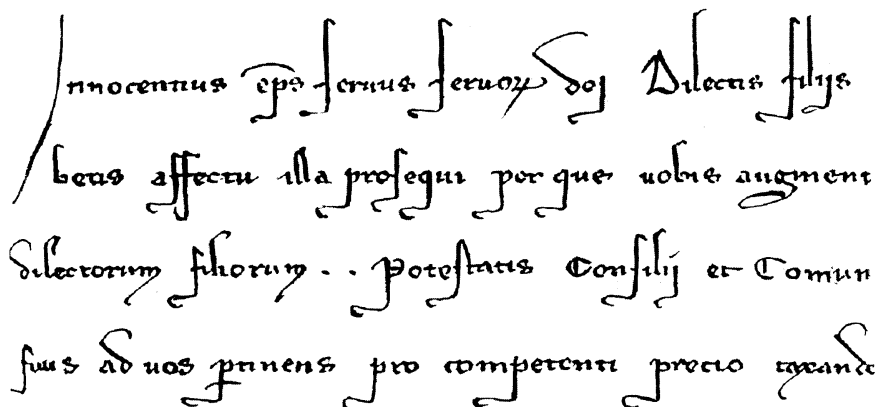 Innocentius eps seruus seruoꝝ dei Dilectis filijs
betis affectu illa prosequi per que uobis augment
dilectorum filiorum . . Potestatis Consilij et Comun
suis ad uos ꝑtinens pro competenti precio taxand